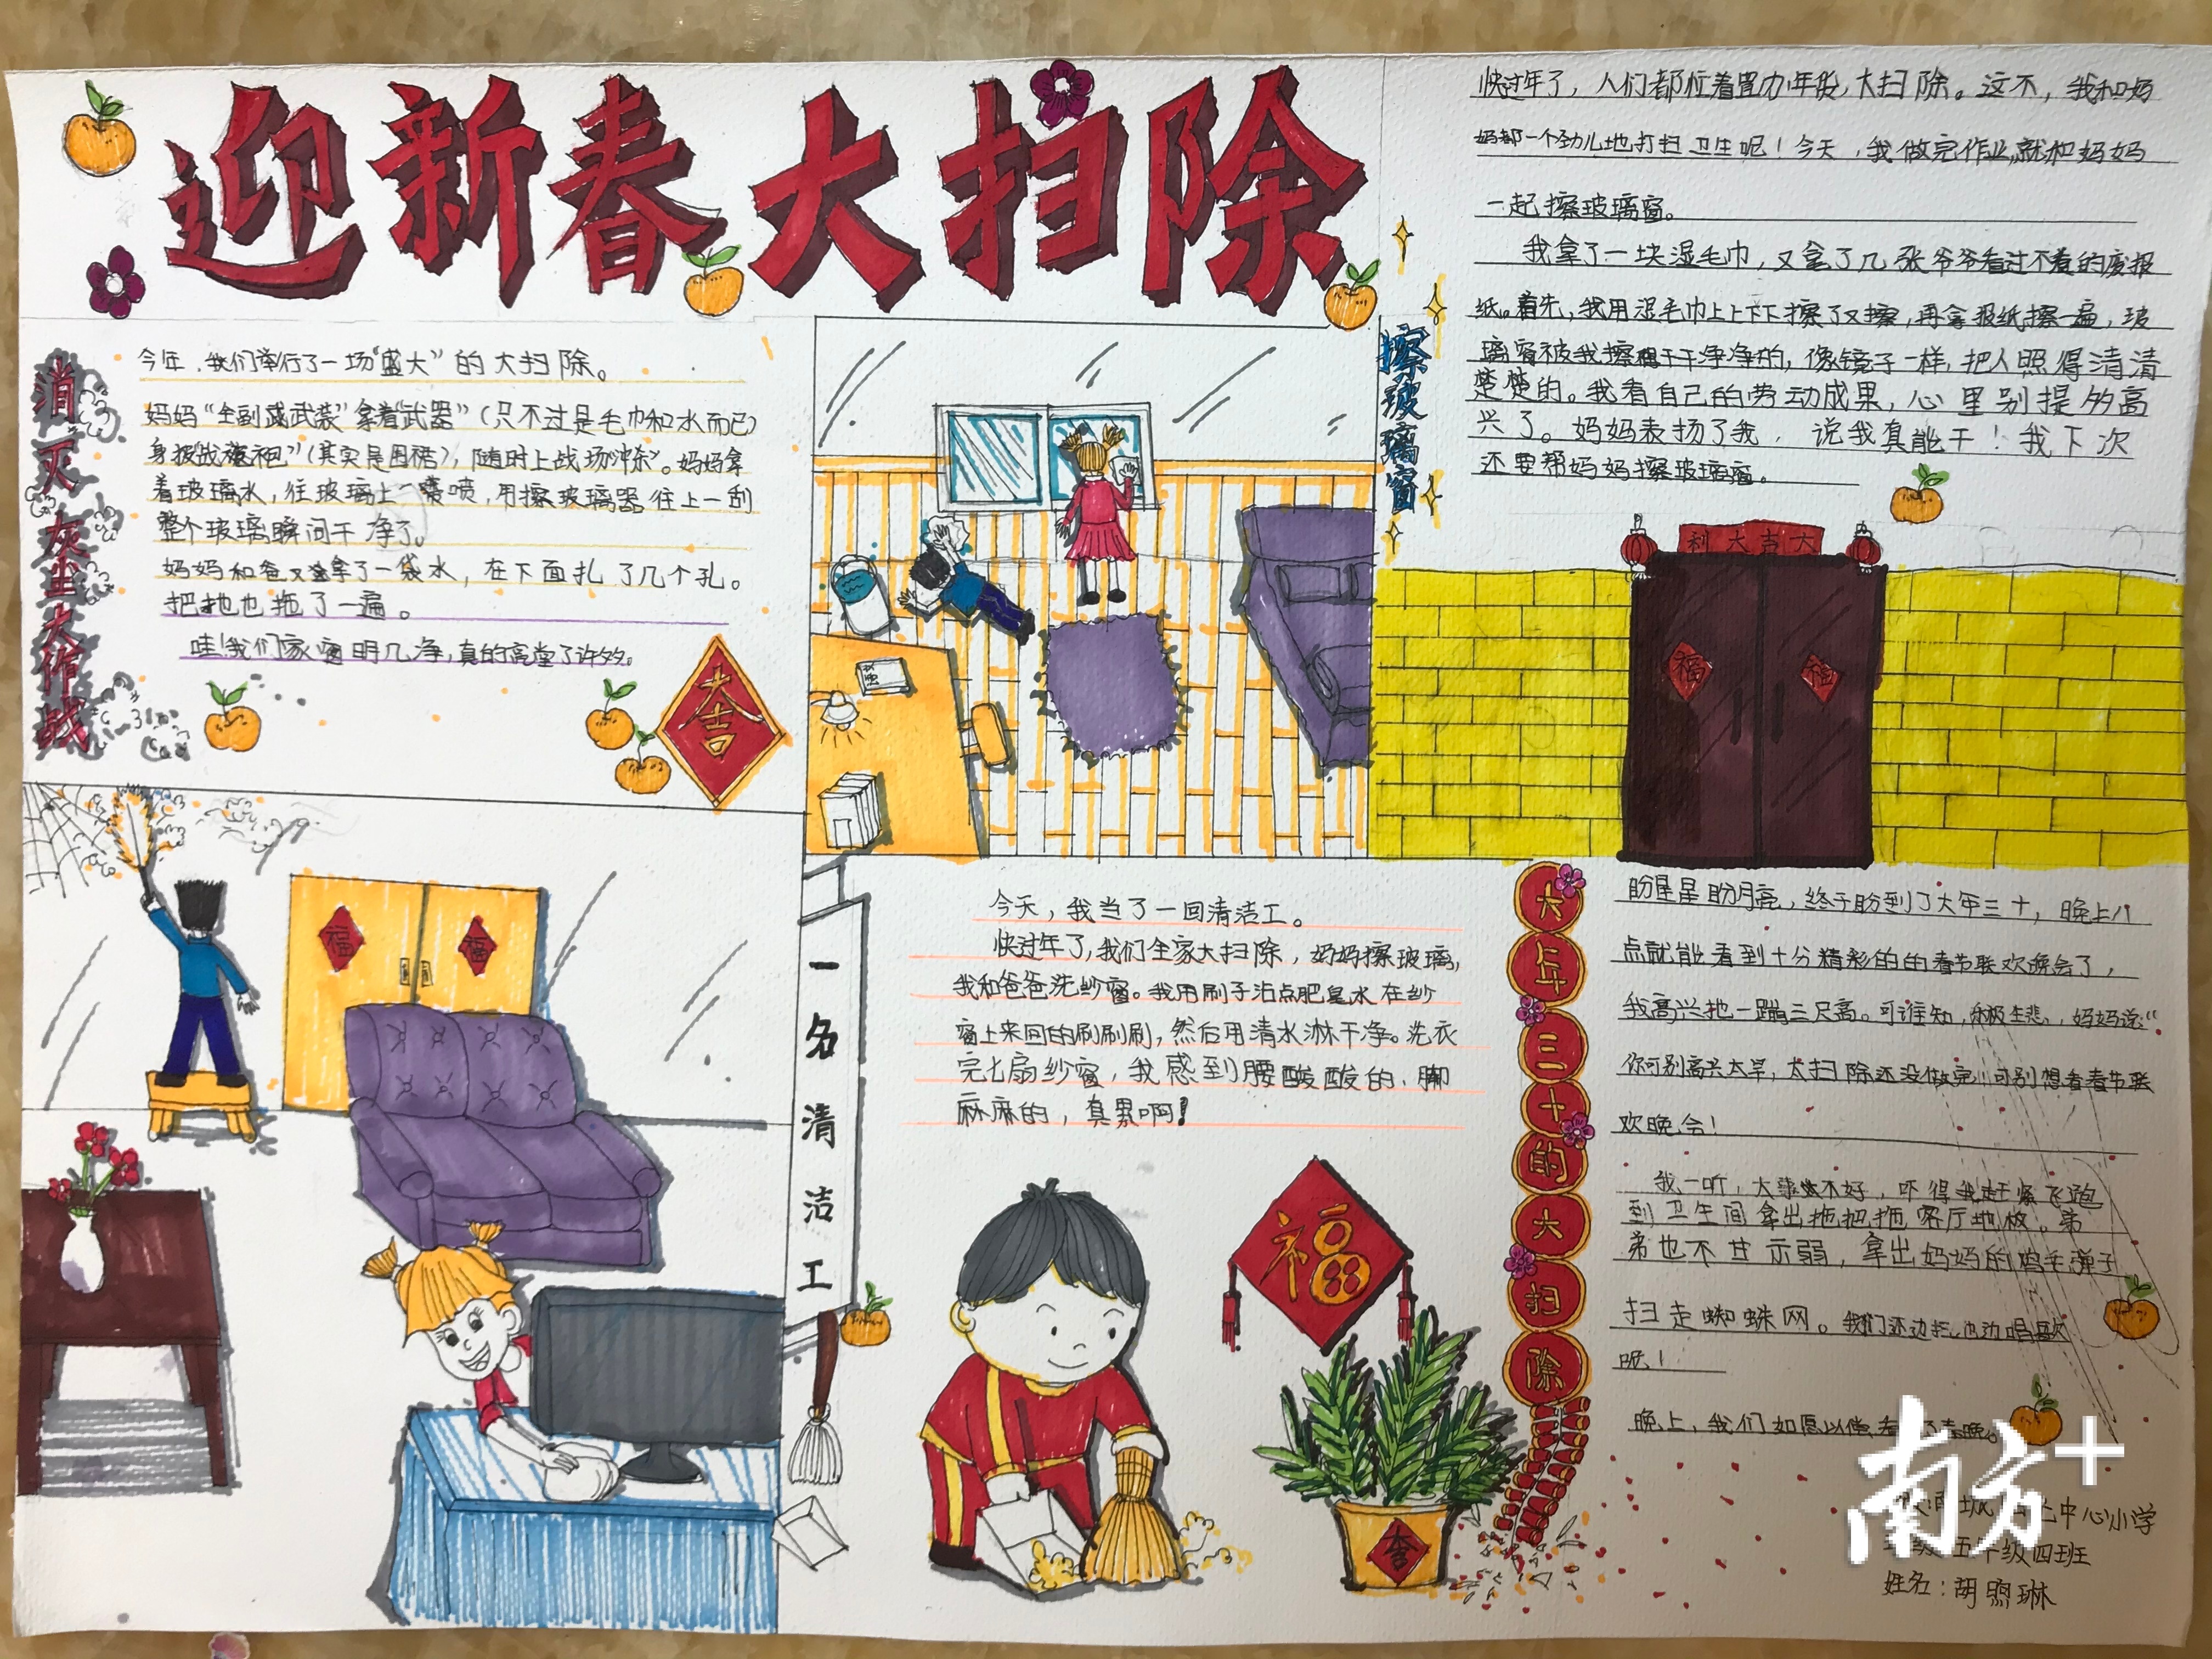 迎新春大扫除
消灭灰尘大作战
今年，我们举行了一场“盛大”的大扫除。
妈妈“全副武装”拿着“武器”（只不过是毛巾和水而已）
身披“战袍”（其实是围裙），随时上战场“冲杀”。妈妈拿
着玻璃水，往玻璃上一喷，用擦玻璃器往上一刮
整个玻璃瞬间干净了。
妈妈和爸又拿了一袋水，在下面扎了几个孔。
把地也拖了一遍。
哇！我们家窗明几净，真的高堂了许多。
大吉
擦玻璃窗
快过年了，人们都忙着置办年货，大扫除。这不，我和妈
妈都一个劲儿地打扫卫生呢！今天，我做完作业，就和妈妈
一起擦玻璃窗。
我拿了一块湿毛巾，又拿了几张爷爷看过不看的废报
纸。首先，我用湿毛巾上上下下擦了又擦，再拿报纸擦一遍，玻
璃窗被我擦得干干净净的，像镜子一样，把人照得清清
楚楚的。我看自己的劳动成果，心里别提多高
兴了。妈妈表扬了我，说我真能干！我下次
还要帮妈妈擦玻璃窗。
利大吉大
福
福
福
福
一名清洁工
今天，我当了一回清洁工。
快过年了，我们全家大扫除，妈妈擦玻璃，
我和爸爸洗纱窗。我用刷子沾点肥皂水在纱
窗上来回的刷刷刷，然后用清水淋干净。洗衣
完七扇纱窗，我感到腰酸酸的，脚
麻麻的，真累啊！
福
大年三十的大扫除
盼星星盼月亮，终于盼到了大年三十，晚上八
点就能看到十分精彩的的春节联欢晚会了，
我高兴地一蹦三尺高。可谁知，乐极生悲，妈妈说：“
你可别高兴太早，大扫除还没做完！可别想看春节联
欢晚会！
我一听，大事不好，吓得我赶紧飞跑
到卫生间拿出拖把拖客厅地板。弟
弟也不甘示弱，拿出妈妈的鸡毛弹子
扫走蜘蛛网。我们还边扫边唱歌
呢！
晚上，我们如愿以偿看了春晚。
中心小学
五年级四班
姓名：胡煦琳
南方+